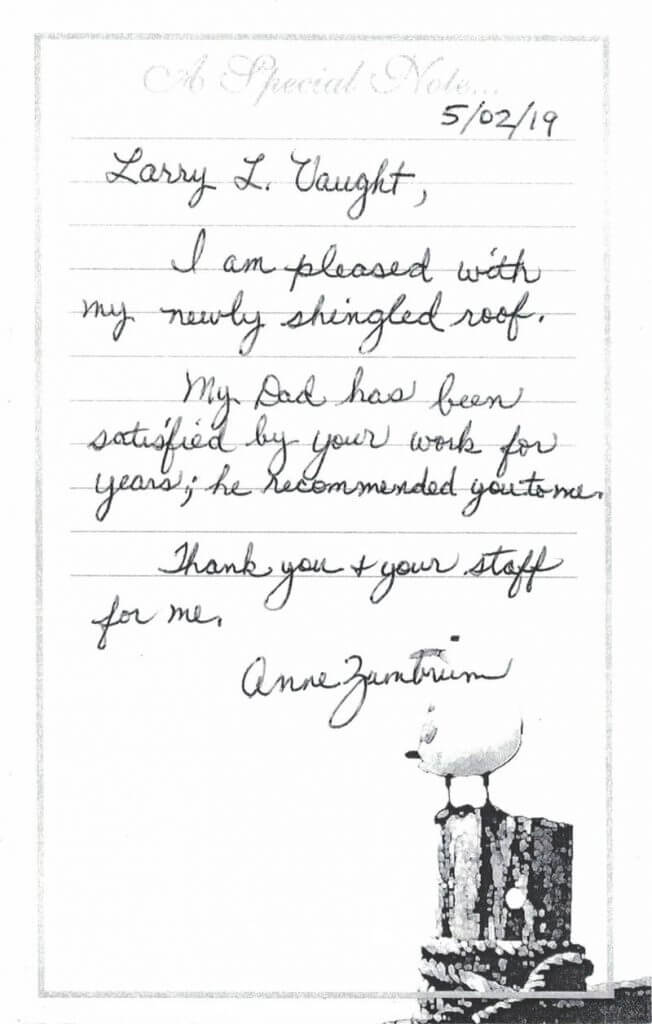 A Special Note...
5/02/19
Larry L. Vaught,
I am pleased with
my newly shingled roof.
My Dad has been
satisfied by your work for
years; he recommended you to me.
Thank you + your staff
for me.
Anne Zumbrum